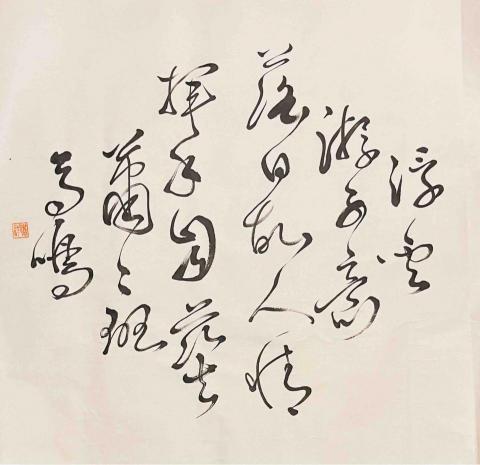 浮雲
游子意
落日故人情
揮手自茲去
蕭〻班
馬鳴